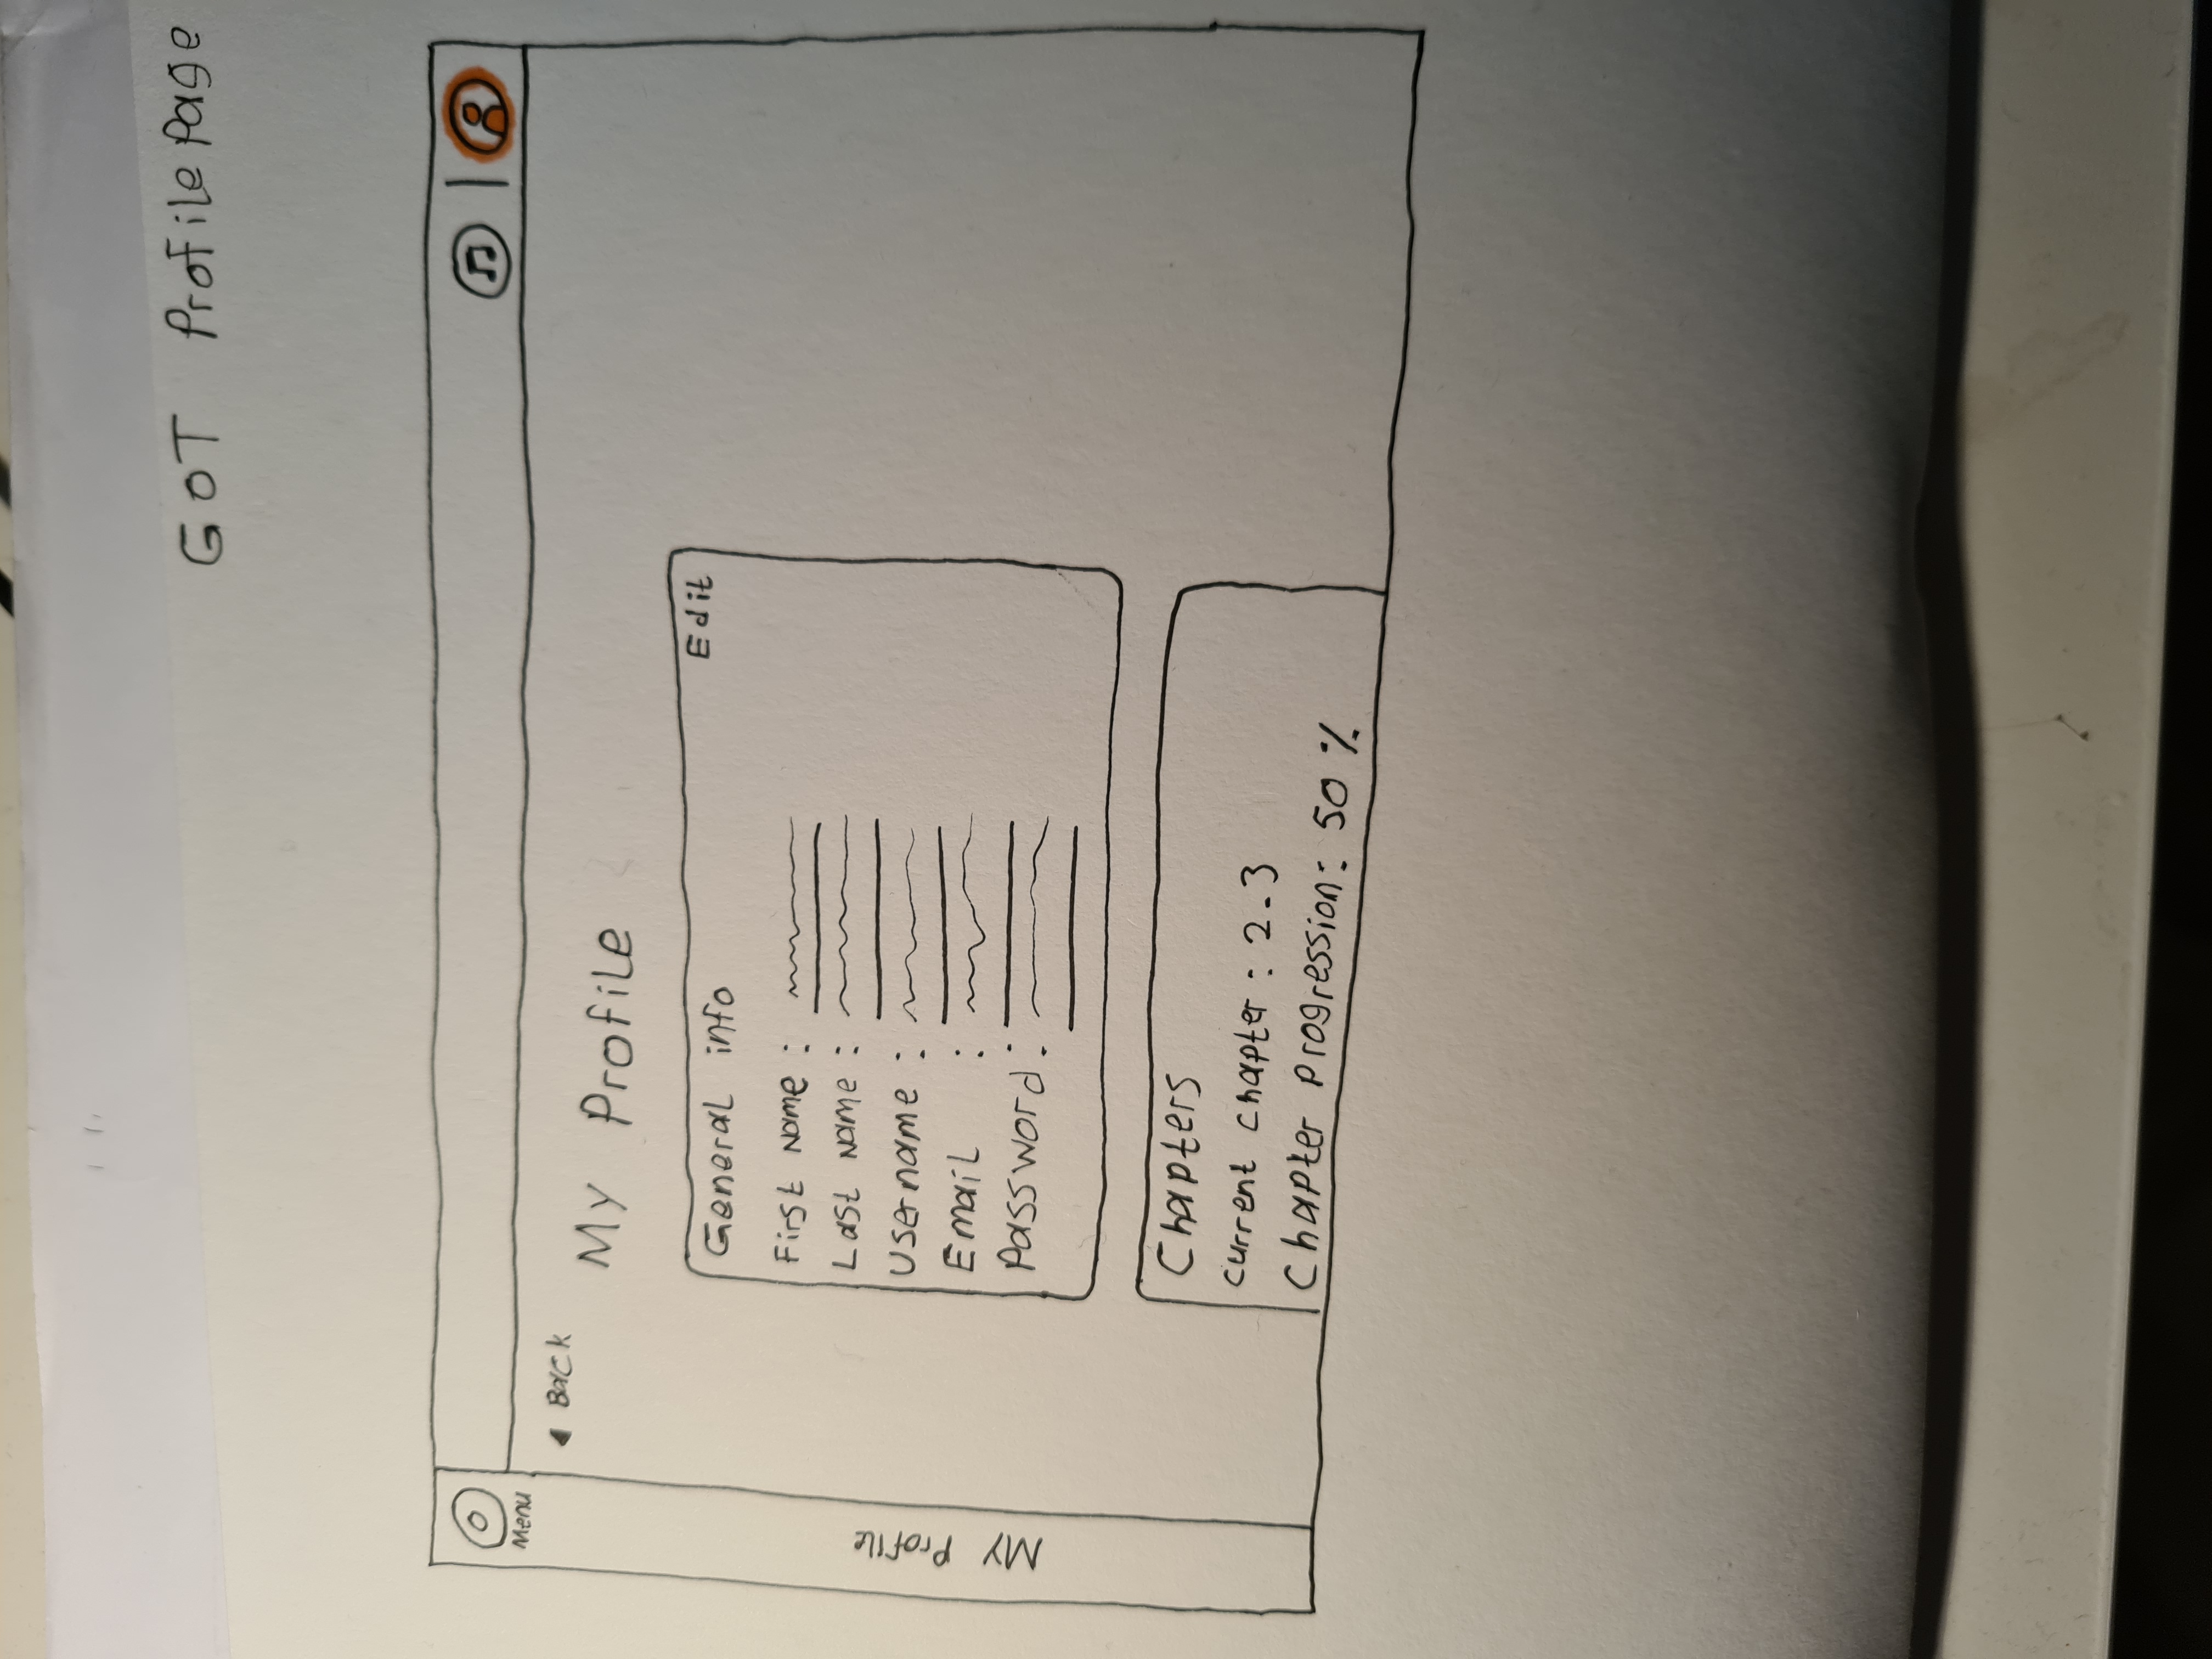 GOT Profile Page
Menu
Back
My Profile
My Profile
General info
Edit
First Name :
Last Name :
Username :
Email :
Password :
Chapters
current chapter : 2.3
Chapter progression: 50 %